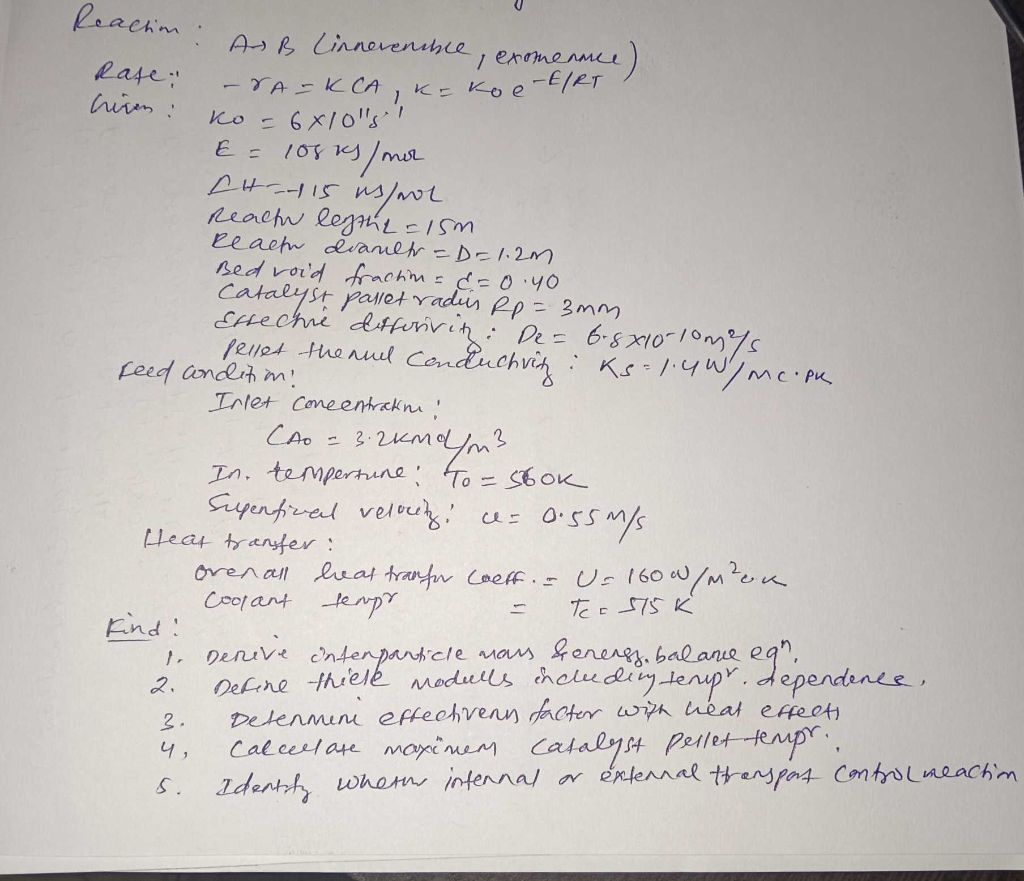 Reaction :
A → B (irreversible, exothermic)
Rate :  -rA = KCA, K = Ko e^-E/RT
Given :  Ko = 6×10^11 s^-1
E = 108 KJ/mol
ΔH = -115 KJ/mol
Reactor length L = 15m
Reactor diametr = D = 1.2m
Bed void fraction = ε = 0.40
Catalyst pallet radius Rp = 3mm
Effective diffusivity : De = 6.8×10^-10 m²/s
Pellet thermal Conductivity : Ks = 1.4 W/m
Feed condition :
Inlet concentration :
CAo = 3.2 Kmol/m³
In. temperture : To = 560K
Superficial velocity : u = 0.55 m/s
Heat transfer :
Overall heat tranfer Coeff. = U = 160 W/m²
Coolant tempr = Tc = 515 K
Find :
1. Derive interparticle mass & energy balance eqn.
2. Define thiele modulls including tempr. dependence,
3. Determine effectiveness factor with heat effects
4, Calculate maximum catalyst pellet tempr.,
5. Identify whether internal or external transport control reaction